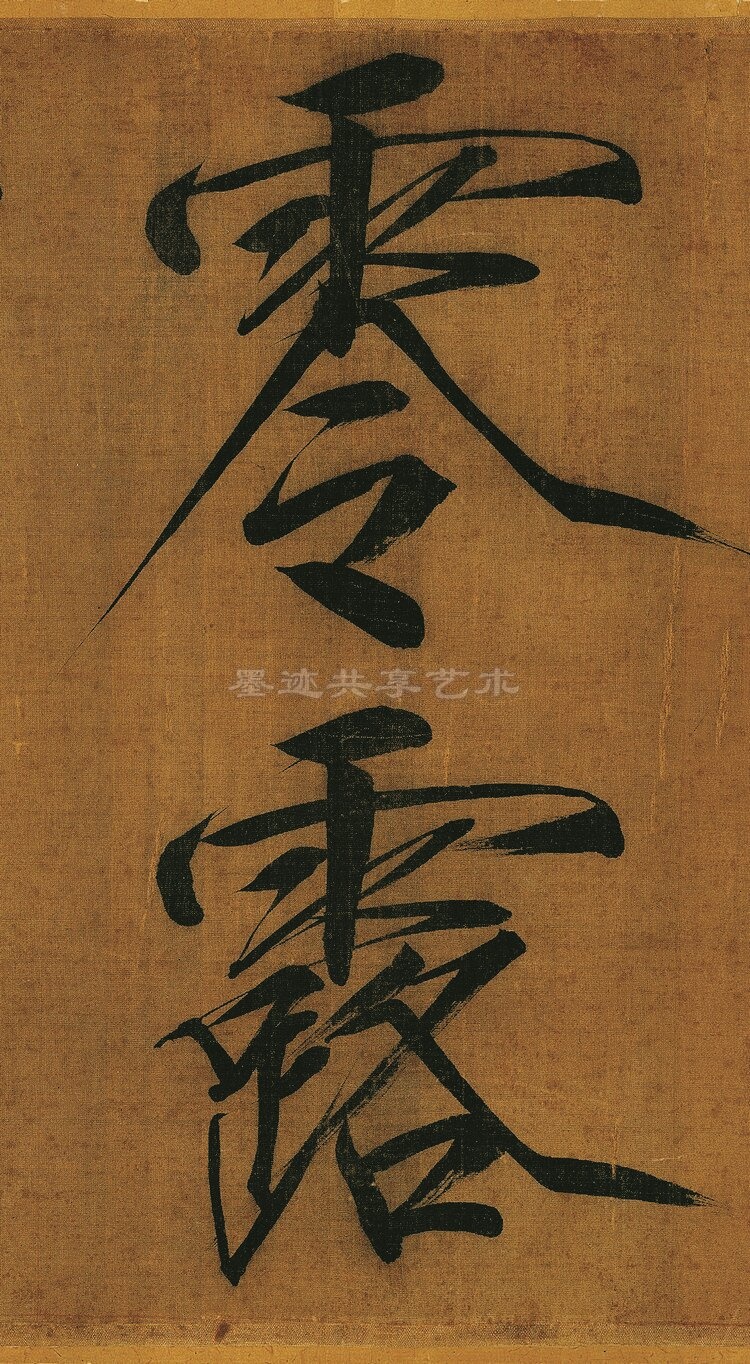 零
墨迹共享艺术
露